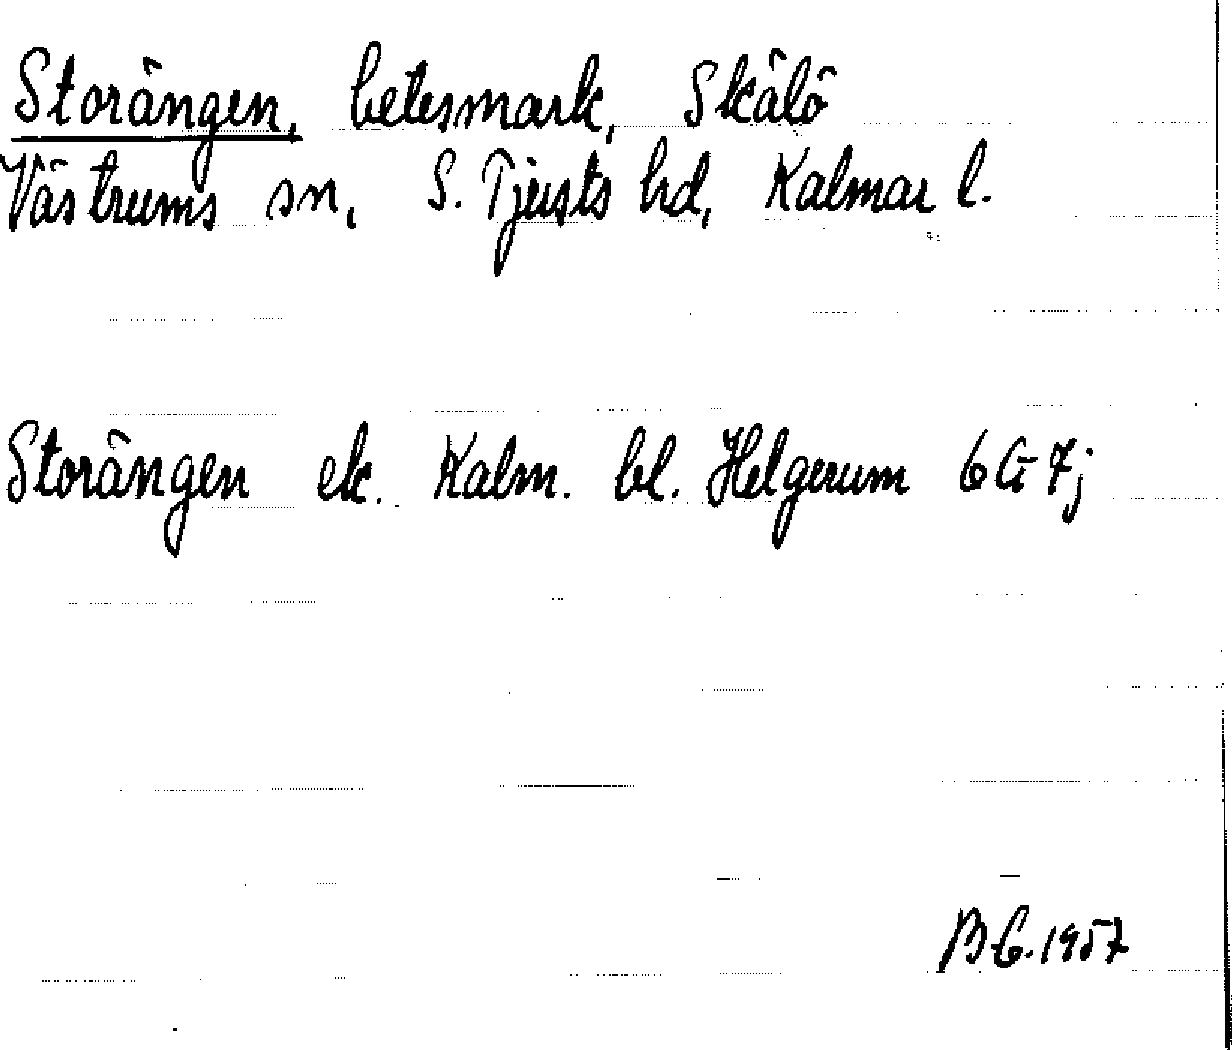 Storängen, betesmark, Skälö
Västrums sn, S. Tjusts hd, Kalmar l.
Storängen ek. Kalm. bl. Helgerum 6G7j
BG. 1957